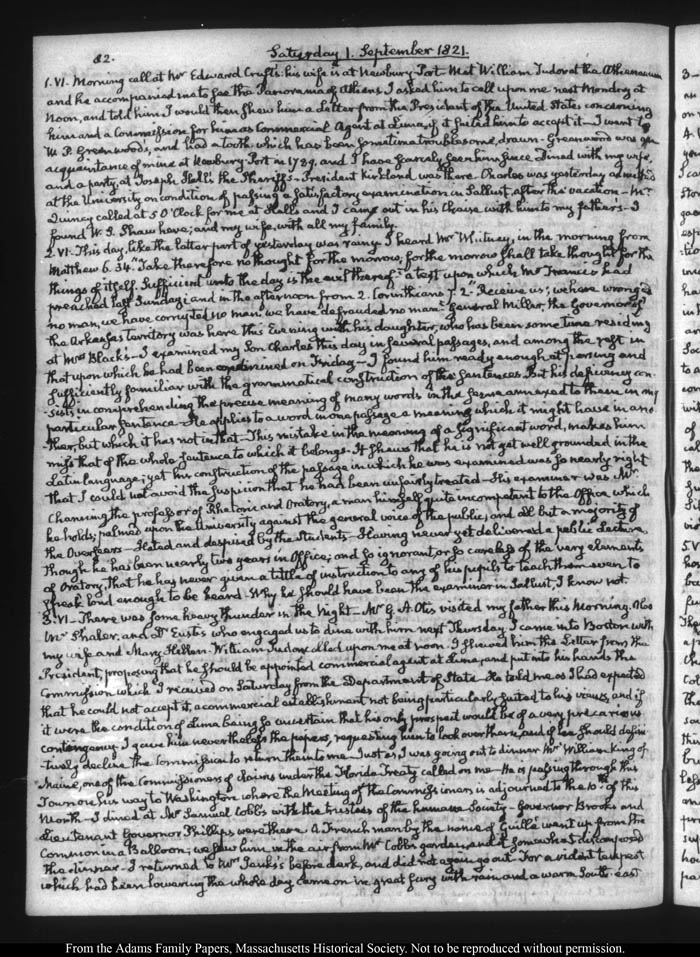 82.
Saturday 1. September 1821.
1. VI. Morning call at Mr Edward Cruft's. his wife is at Newbury Port. Met William Tudor at the Athenaeum
and he accompanied me to see the Panorama of Athens. I asked him to call upon me next Monday at
Noon, and told him I would then shew him a Letter from the President of the United States concerning
him and a Commission for him as Commercial Agent at Lima, if it suited him to accept it—I went to
W. P. Greenwoods, and had a tooth which has been sometime troublesome, drawn—Greenwood was an
acquaintance of mine at Newbury Port in 1789. and I have scarcely seen him since. Dined with my wife,
and a party, at Joseph Hall's the Sheriff's—President Kirkland was there. Charles was yesterday admitted
at the University on condition of passing a satisfactory examination in Sallust, after the vacation—Mr
Quincy called at 5 O'Clock for me at Hall's and I came out in his Chaise with him to my father's—I
found W. S. Shaw here; and my wife, with all my family.
2. VI. This day, like the latter part of yesterday was rainy. I heard Mr Whitney, in the morning from
Matthew 6. 34. "Take therefore no thought for the morrow; for the morrow shall take thought for the
things of itself. Sufficient unto the day is the evil thereof." a text upon which Mr Francis had
preached last Sunday: and in the afternoon from 2. Corinthians 7. 2. "Receive us; we have wronged
no man, we have corrupted no man, we have defrauded no man." General Miller, the Governor of
the Arkansas territory was here this Evening with his daughter, who has been some time residing
at Mrs Black's—I examined my Son Charles this day in several passages, and among the rest in
that upon which he had been examined on Friday—I found him ready enough at parsing and
sufficiently familiar with the grammatical construction of the sentences. But his deficiency con-
sists, in comprehending the precise meaning of many words in the sense annexed to them in any
particular sentence—He applies to a word in one passage a meaning which it might have in ano-
ther, but which it has not in that—This mistake in the meaning of a significant word, makes him
miss that of the whole sentence to which it belongs. It shews that he is not yet well grounded in the
Latin language; yet his construction of the passage in which he was examined was so nearly right
that I could not avoid the suspicion that he had been unfairly treated—His examiner was Mr
Channing the professor of Rhetoric and Oratory, a man himself quite incompetent to the Office which
he holds; palmed upon the University against the general voice of the public, and all but a majority of
the Overseers—Hated and despised by the Students—Having never yet delivered a public Lecture,
though he has been nearly two years in Office; and so ignorant or so careless of the very elements
of Oratory, that he has never given a tittle of instruction to any of his pupils to teach them even to
speak loud enough to be heard. Why he should have been the examiner in Sallust, I know not.
3. VI. There was some heavy thunder in the Night—Mr G. A. Otis visited my father this Morning. Also
Mr Shaler, and Dr Eustis who engaged us to dine with him next Thursday. I came into Boston with
my wife and Mary Hellen. William Tudor called upon me at noon. I shewed him the Letter from the
President, proposing that he should be appointed commercial agent at Lima, and put into his hands the
Commission which I received on Saturday from the Department of State—He told me as I had expected
that he could not accept it, a commercial establishment not being particularly suited to his views, and if
it were the condition of Lima being so uncertain that his only prospect would be of a very precarious
contingency—I gave him nevertheless the papers, requesting him to look over them, and if he should defini-
tively decline the Commission to return them to me—Just as I was going out to dinner Mr William King of
Maine, one of the Commissioners of claims under the Florida Treaty called on me—He is passing through this
Town on his way to Washington where the Meeting of the Commissioners is adjourned to the 10th of this
Month—I dined at Mr Samuel Cobb's with the trustees of the humane Society—Governor Brooks and
Lieutenant Governor Phillips were there. A Frenchman by the name of Guillé went up from the
Common in a Balloon; we saw him in the air from Mr Cobb's garden, and it somewhat discomposed
the dinner—I returned to Mr before dark, and did not again go out. For a violent tempest
which had been lowering the whole day came on in great fury with rain and a warm South-east
From the Adams Family Papers, Massachusetts Historical Society. Not to be reproduced without permission.